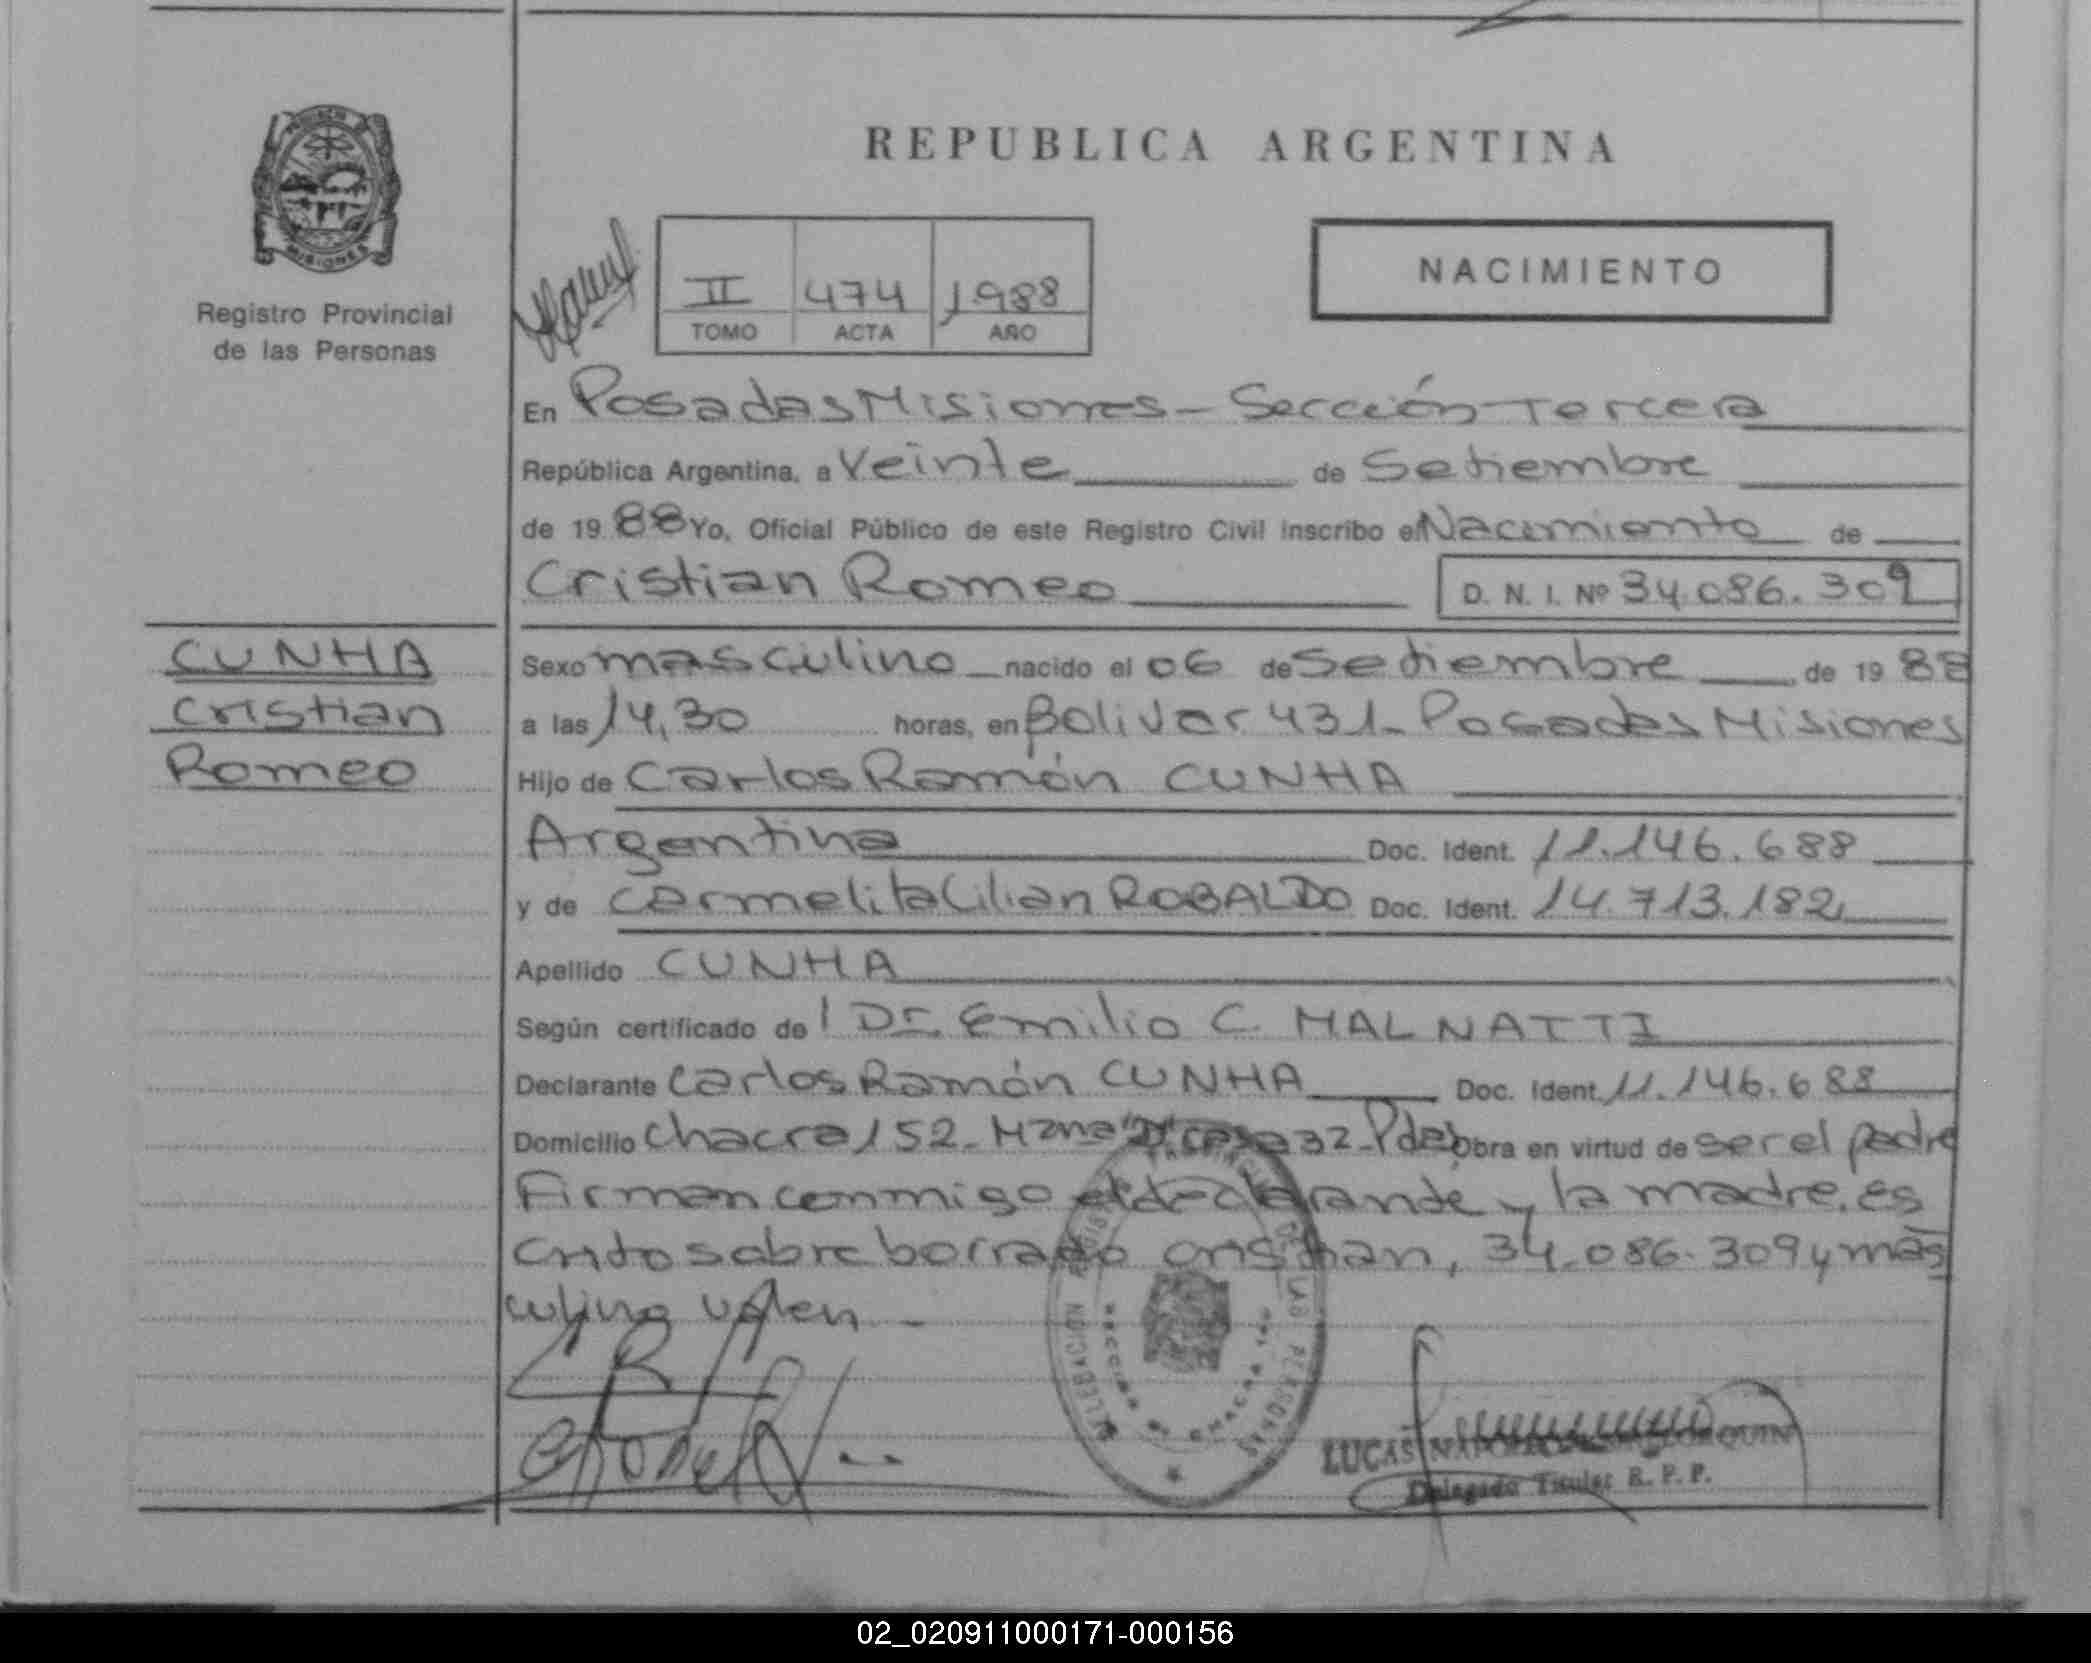 REPUBLICA ARGENTINA
PROVINCIA DE
MISIONES
Registro Provincial
de las Personas
II 474 1988
TOMO ACTA AÑO
NACIMIENTO
En Posadas Misiones - Sección Tercera
República Argentina, a Veinte de Setiembre
de 1988 Yo, Oficial Público de este Registro Civil inscribo el Nacimiento de
Cristian Romeo D. N. I. Nº 34.086.309
CUNHA
Cristian
Romeo
Sexo masculino nacido el 06 de Setiembre de 1988
a las 14,30 horas, en Bolivar 431- Posadas Misiones
Hijo de Carlos Ramón CUNHA
Argentina Doc. Ident. 11.146.688
y de Carmelita Lilian ROBALDO Doc. Ident. 14.713.182
Apellido CUNHA
Según certificado de l Dr. Emilio C. MALNATTI
Declarante Carlos Ramón CUNHA Doc. Ident. 11.146.688
Domicilio Chacra 152- Mzna casa 32- Pdas Obra en virtud de ser el padre
Firman conmigo el declarante y la madre. es
crito sobre borrado cristian, 34.086.309 y mas
culino valen
LUCAS
Delegado Titular R. P. P.
02_020911000171-000156